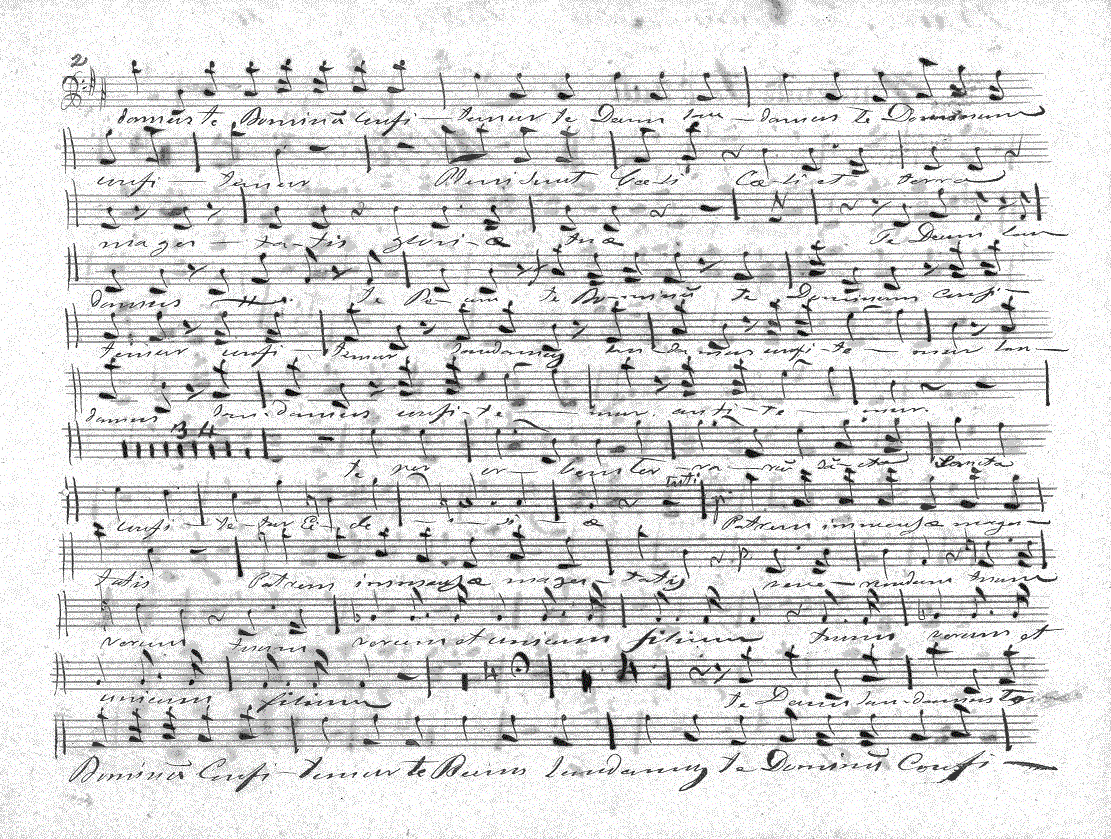 2
damus te Dominū Confi - temur te Deum lau - damus te Dominum
confi - temur Pleni sunt Cæli Cæli et terra
mages - tatis gloriæ tuæ Te Deum lau
damus te De - um te Dominū te Dominum confi -
temur confi - temur laudamus lau - damus confi - te - mur lau -
damus lau - damus confi - te - mur confi - te - mur
34
te per or - bem ter - ra - rū sancta
confi - te - tur Ec - cle - si - æ Tutti Patrem immensæ mages -
tatis Patrem immensæ mages - tatis vene - randum tuum
verum tuum verum et unicum filium tuum verum et
unicum filium te Deum lau - damus te
Dominū Confi - temur te Deum laudamus te Dominū Confi -